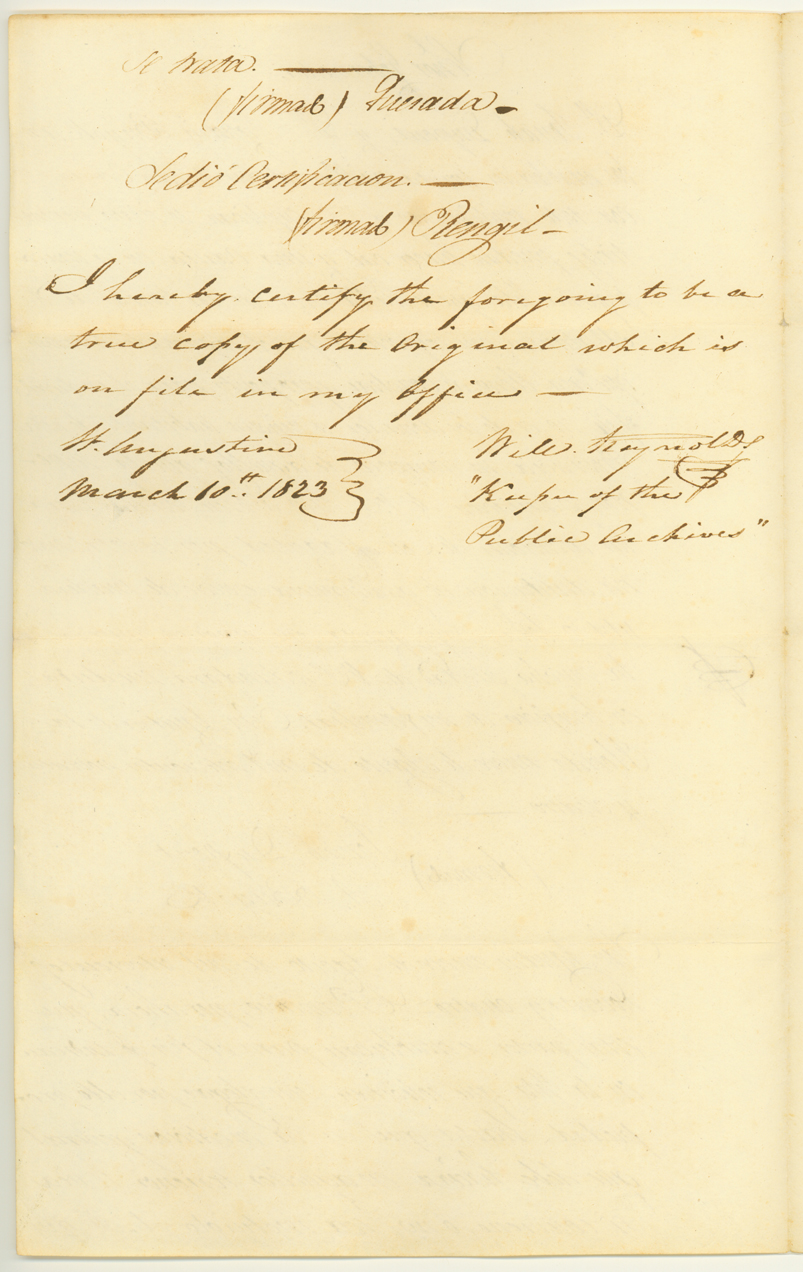 Se trata. —
(firmad) Quesada —
Se dió Certificacion. —
(firmad) Rengil —
I hereby certify the foregoing to be a
true copy of the Original which is
on file in my Office —
St. Augustine
March 10th. 1823
Will. Reynolds
"Keeper of the
Public Archives"